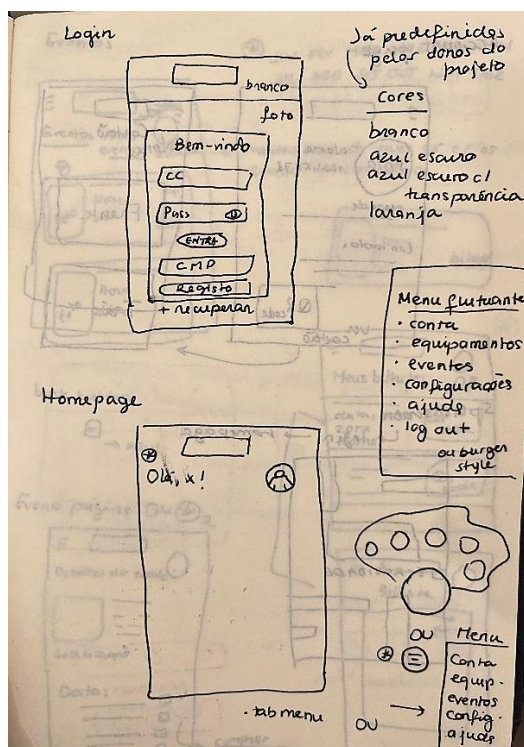 Login
branco
foto
Bem-vindo
CC
Pass
ENTRA
CMP
Registo
+ recuperar
Já predefinidas
pelos donos do
projeto
Cores
branco
azul escuro
azul escuro c/
transparência
laranja
Menu flutuante
· conta
· equipamentos
· eventos
· configurações
· ajuda
· log out
ou burger
style
Homepage
Olá, x!
ou
Menu
Conta
equip.
eventos
config.
ajuda
· tab menu
ou